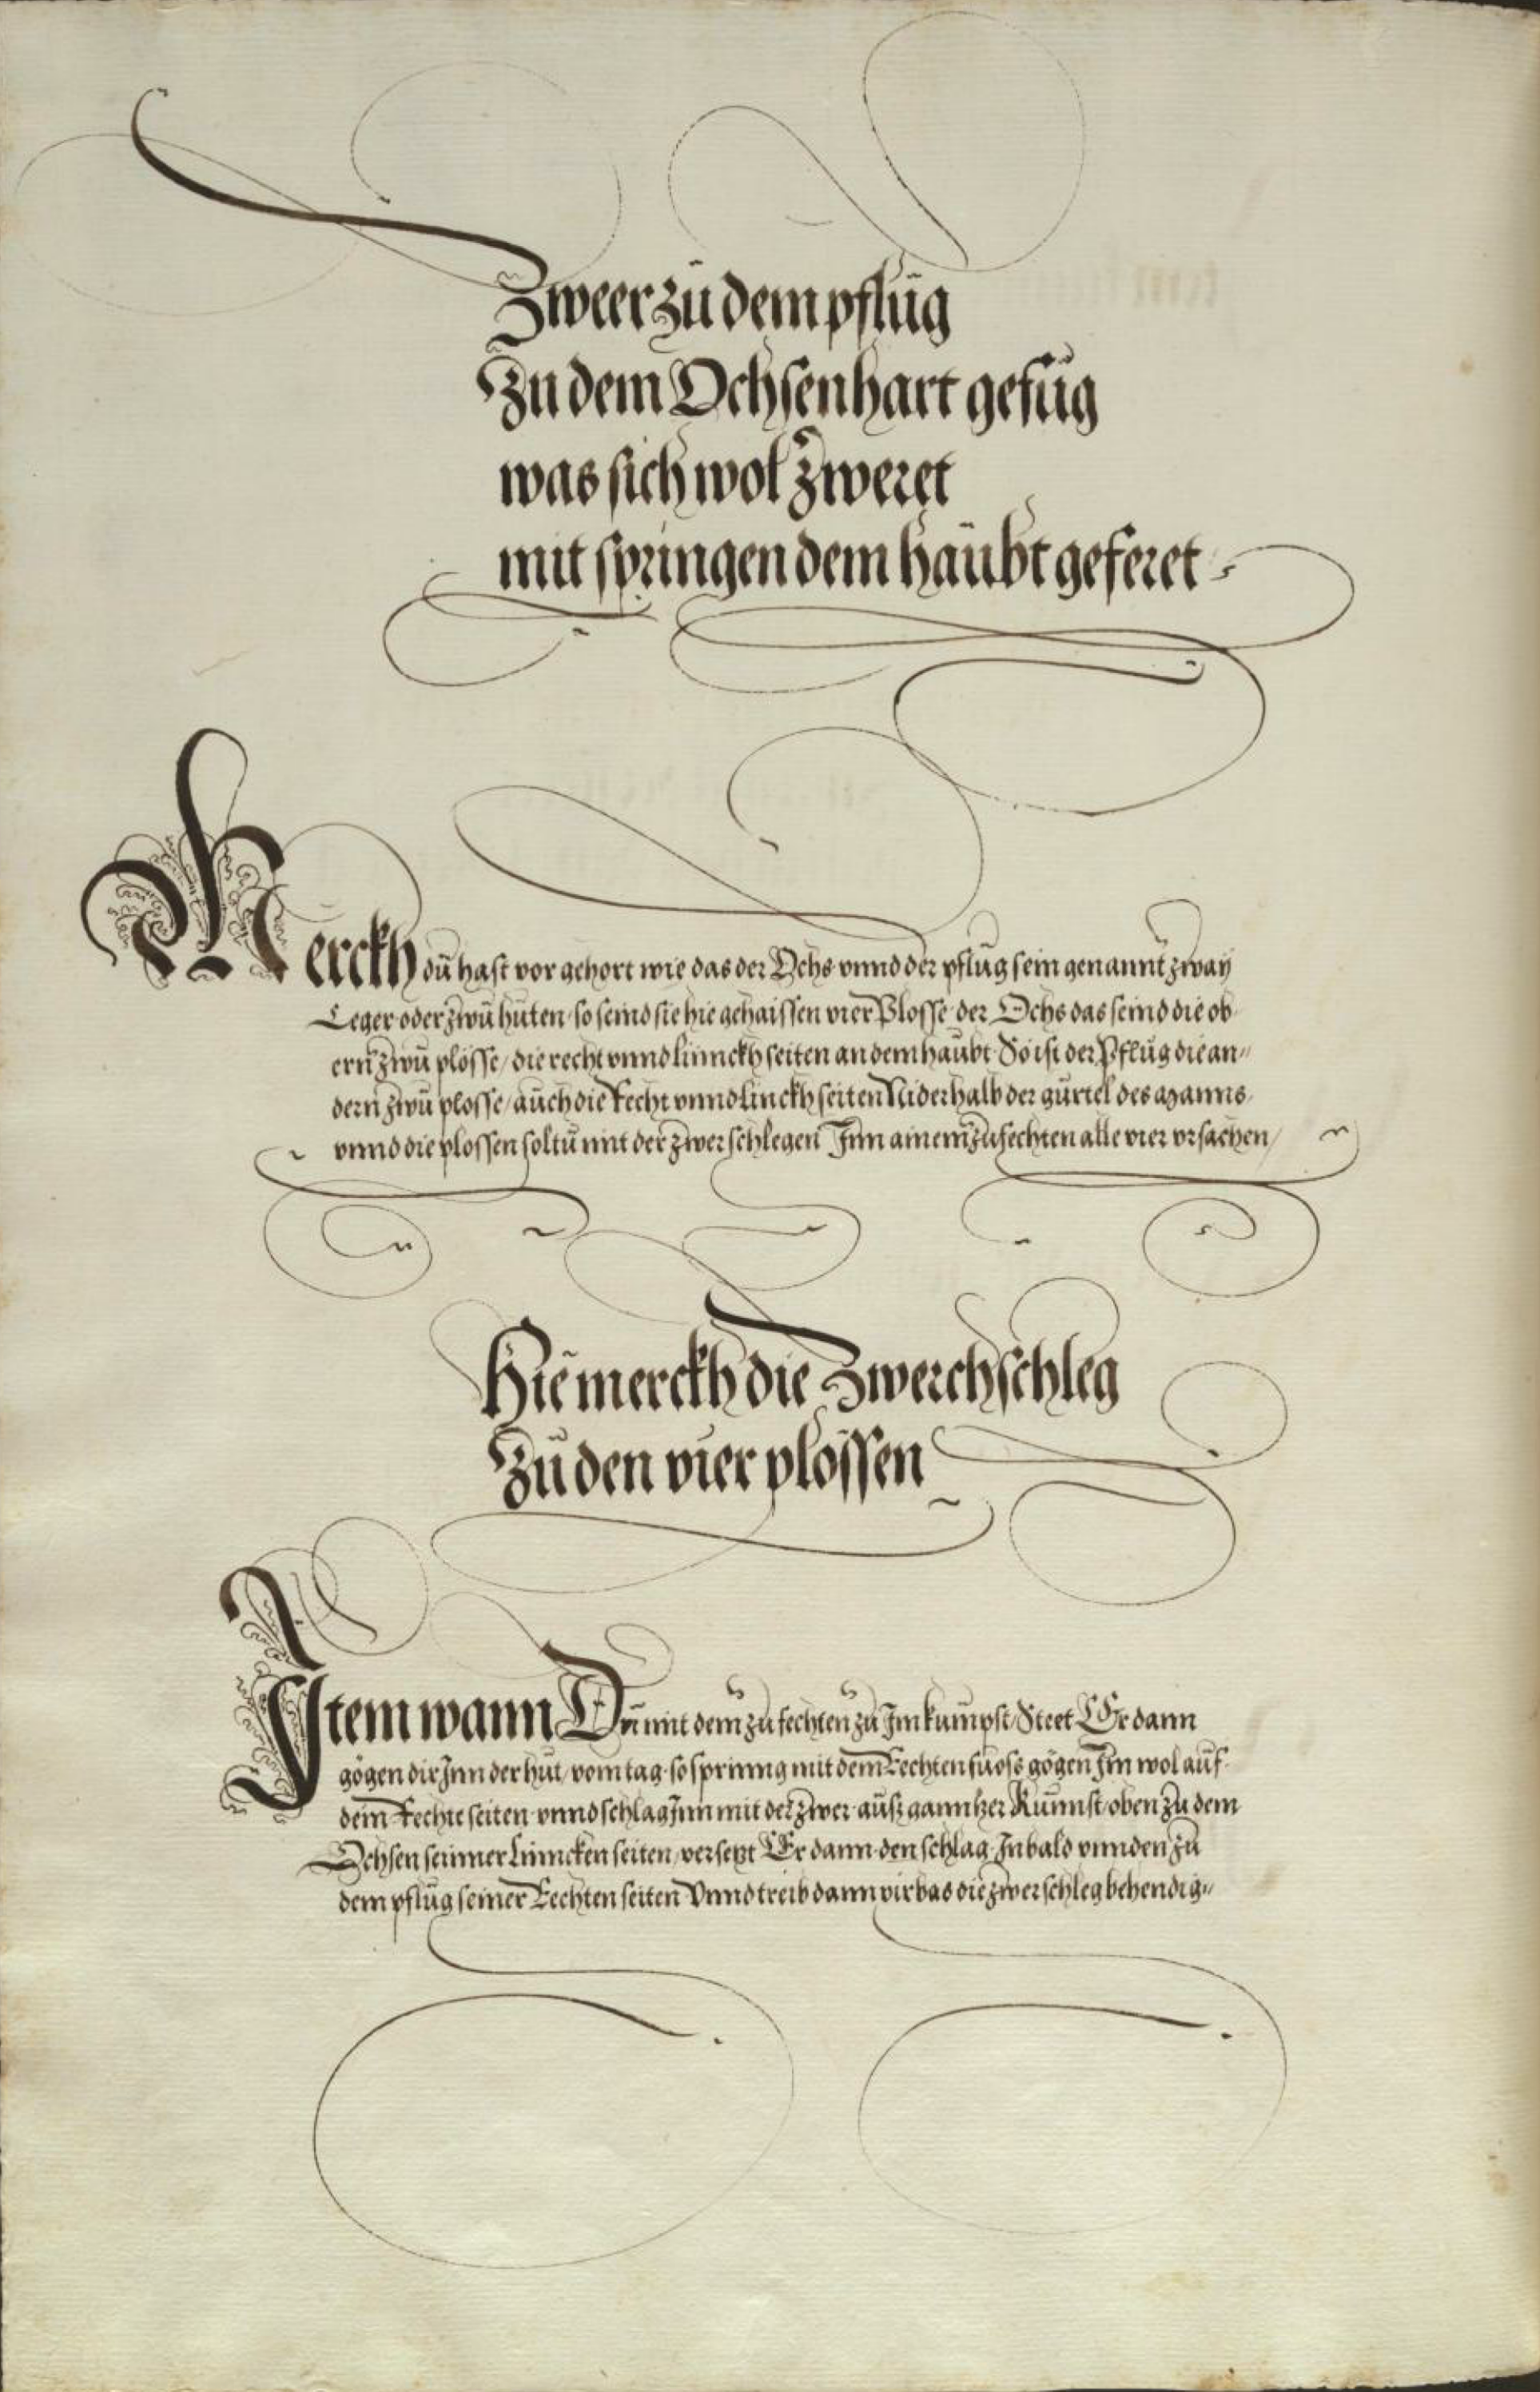 Zweer zů dem pflůg
Zu dem Ochsen hart gefůg
was sich wol zweret
mit springen dem haůbt geferet
Merckh dů hast vor gehort wie das der Ochs vnnd der pflůg sein genannt zway
Leger oder zwů hůten so seind sie hie gehaissen vier Plosse der Ochs das seind die ob
ern zwů plösse / die recht vnnd linnckh seiten an dem haůbt So ist der Pflůg die an=
dern zwů plosse / aůch die recht vnnd linckh seiten Niderhalb der gůrtel des manns
vnnd die plossen soltů mit der zwer schlegen Inn ainem zůfechten alle vier vrsachen /
Hie merckh die Zwerchschleg
Zů den vier plössen
Item wann Dů mit dem zů fechten zů Im kůmpst / Steet Er dann
gögen dir Inn der hůt / vom tag so sprinng mit dem Rechten fůoss gögen Im wol aůf
dem Rechte seiten vnnd schlag Inn mit der zwer aůsz ganntzer Kůnnst / oben zů dem
Ochsen seinner linncken seiten / versetzt Er dann den schlag In bald vnnden zů
dem pflůg seiner Rechten seiten Vnnd treib dann virbas die zwer schleg behendig=